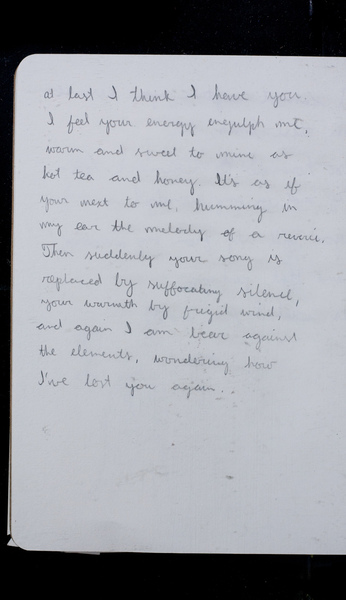 at last I think I have you.
I feel your energy engulph me,
warm and sweet to mine as
hot tea and honey. It's as if
your next to me, humming in
my ear the melody of a
Then suddenly your song is
replaced by suffocating silence,
your warmth by frigid wind,
and again I am bear against
the elements, wondering how
I've lost you again..